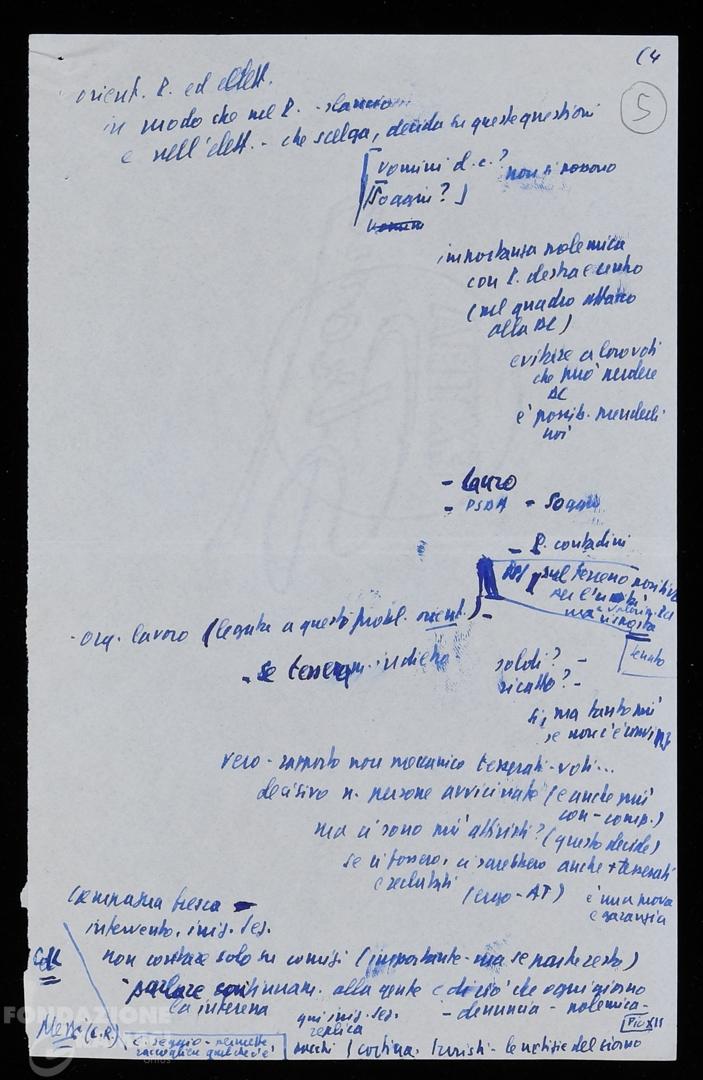 (4
5
orient. P. ed elett.
in modo che nel P. - slancio
e nell'elett. - che scelga, decida su queste questioni
uomini d.c.?
non si possono
Sogni?
uomini
importanza polemica
con P. destra e centro
(nel quadro attacco
alla DC)
evitare a loro voti
che può perdere
DC
è possib. prenderli
noi
- Lauro
- PSDI - Sogni
- P. contadini
sul terreno positivo
per l'unità
ma risposta
- org. lavoro (legata a questo probl. orient.) -
tenuto
- se tesseram. indietro
soldi? -
ricatto? -
si, ma tanto più
se non c'è
vero - rapporto non meccanico tesserati - voti...
decisivo n. persone avvicinate (e anche più
con - comp.)
ma ci sono più attivisti? (questo decide)
se ci fossero, ci sarebbero anche + tesserati
e reclutati
(ergo - AT)
è una prova
e garanzia
Campagna fresca -
intervento, iniz. les.
non contare solo su comizi (importante - ma se parte resto)
parlare continuam. alla gente e di ciò che ogni giorno
la interessa
qui iniz. les.
replica
- denuncia - polemica -
Pio XII
Messe (C.R.)
e. seggio - permette
ricchi / Cortina, turisti - le notizie del giorno
FONDAZIONE